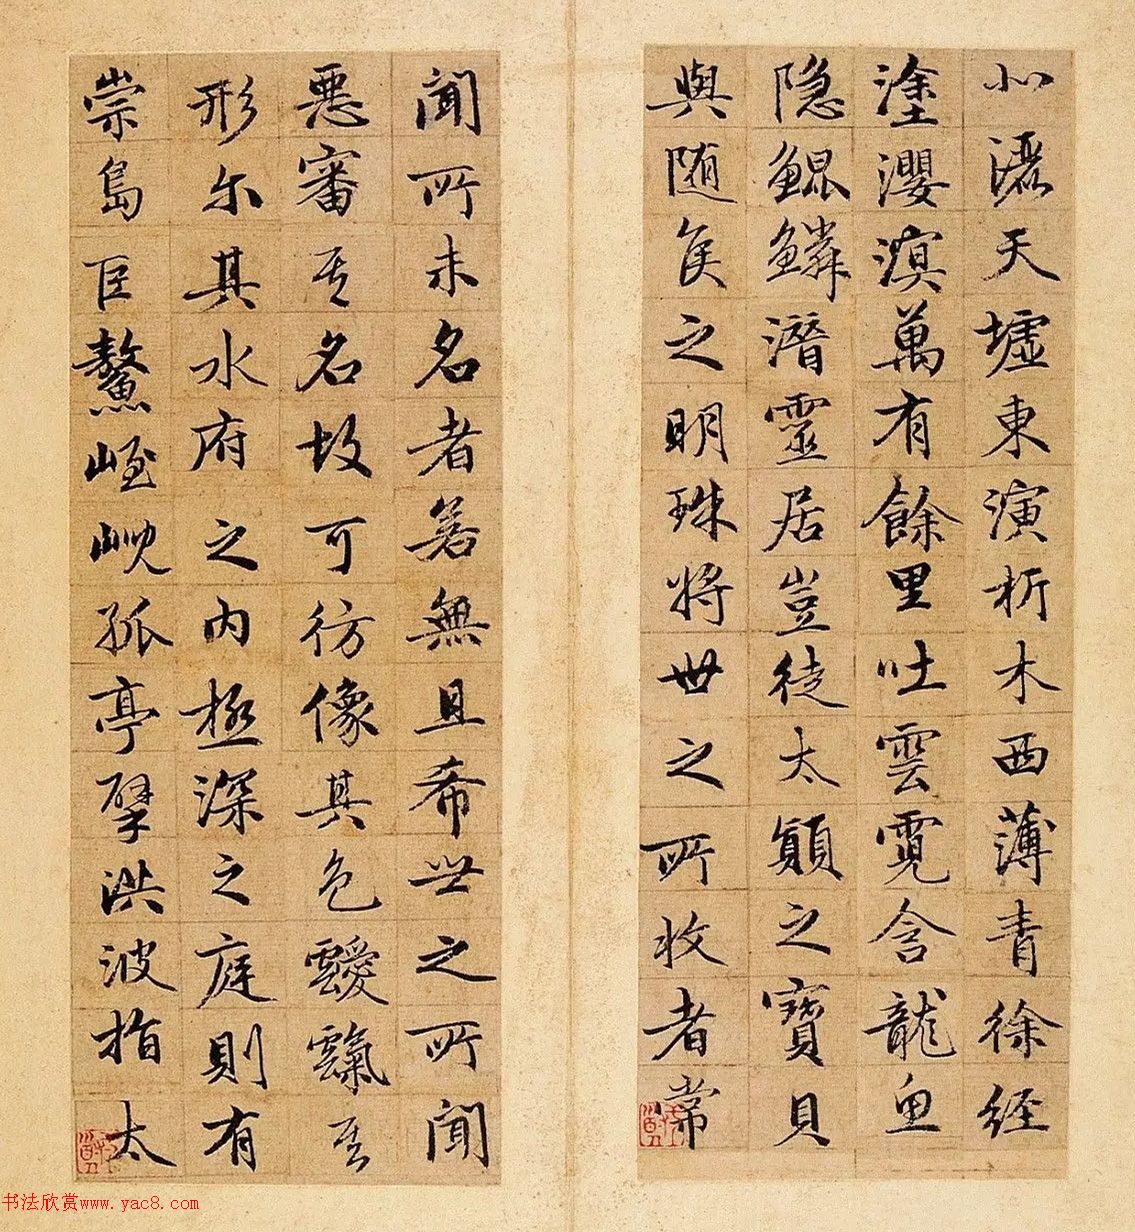 北灑天墟東演析木西薄青徐經
塗瀴溟萬有餘里吐雲霓含龍魚
隱鯤鱗潛靈居豈徒太顛之寶貝
與随侯之明珠將世之所收者常
聞所未名者若無且希世之所聞
惡審其名故可彷像其色靉霼其
形尔其水府之内極深之庭則有
崇島巨鼇峌峴孤亭擘洪波指太
书法欣赏www.yac8.com